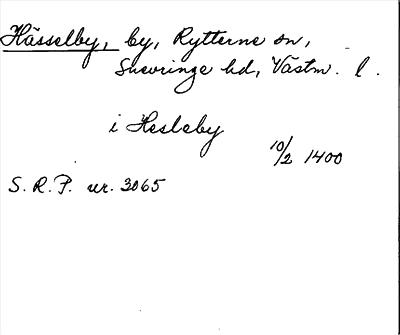 Hässelby, by, Rytterne sn,
Snevringe hd, Västm. l.
i Hesleby
10/2 1400
S. R. P. nr. 3065